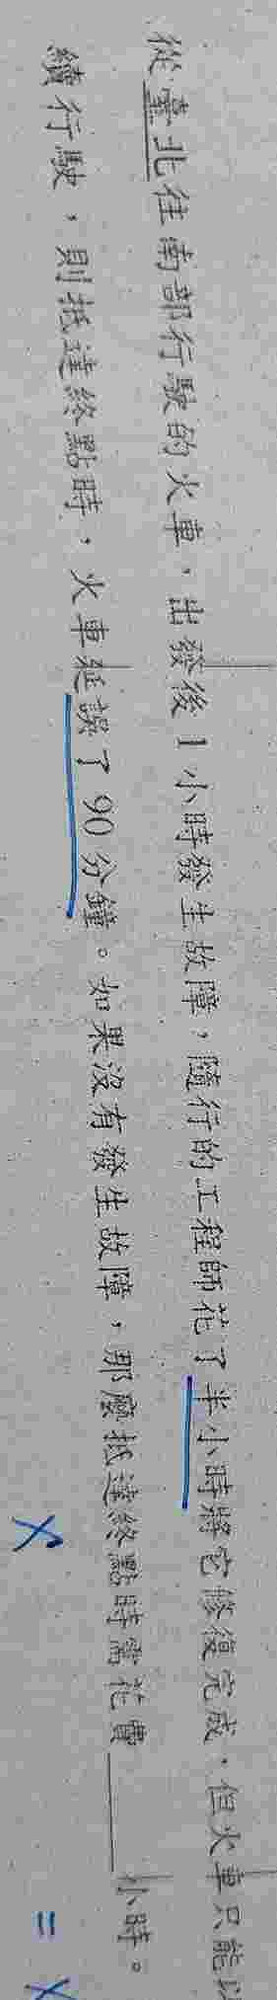 從臺北往南部行駛的火車，出發後1小時發生故障，隨行的工程師花了半小時將它修復完成，但火車只能以
續行駛，則抵達終點時，火車延誤了90分鐘。如果沒有發生故障，那麼抵達終點時需花費______小時。
X
= X